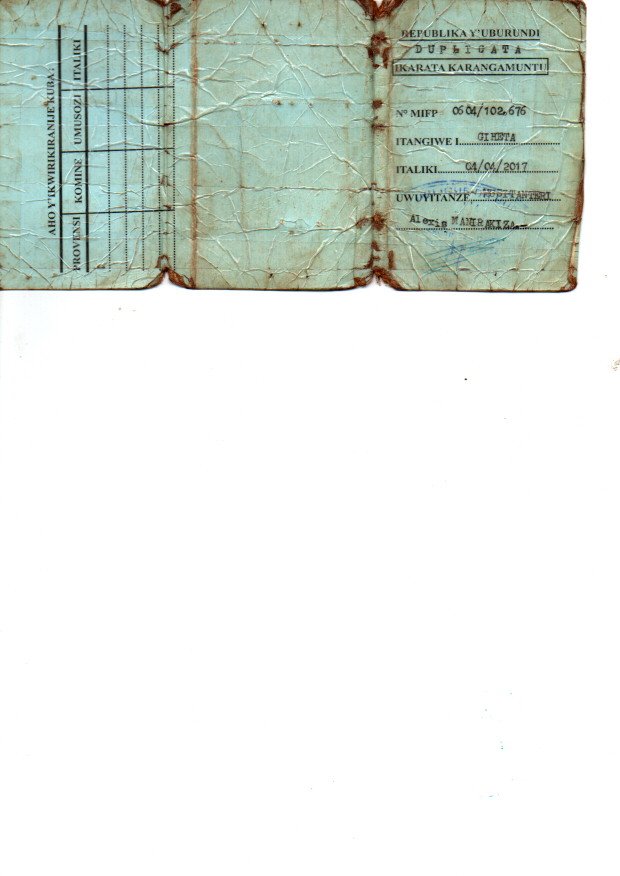 REPUBLIKA Y'UBURUNDI
DUPLICATA
IKARATA KARANGAMUNTU
N° MIFP 0604/102,676
ITANGIWE I GIHETA
ITALIKI 04/04/2017
UWUYITANZE
Alexis MANIRAKIZA
AHO Y'IKWIRIKIRANIJE KUBA :
PROVENSI KOMINE UMUSOZI ITALIKI